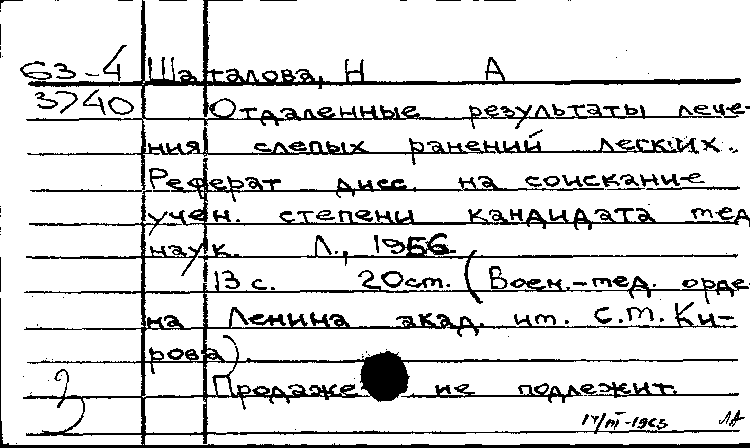 63-4 Шаталова, Н А
3740 Отдаленные результаты лече-
ния слепых ранений легких.
Реферат дисс. на соискание
учен. степени кандидата мед
наук. Л., 1956
13 с. 20 см. (Воен.-мед. орде-
на Ленина акад. им. С.М. Ки-
рова).
Продаже не подлежит.
3
17/III-1963 ЛА